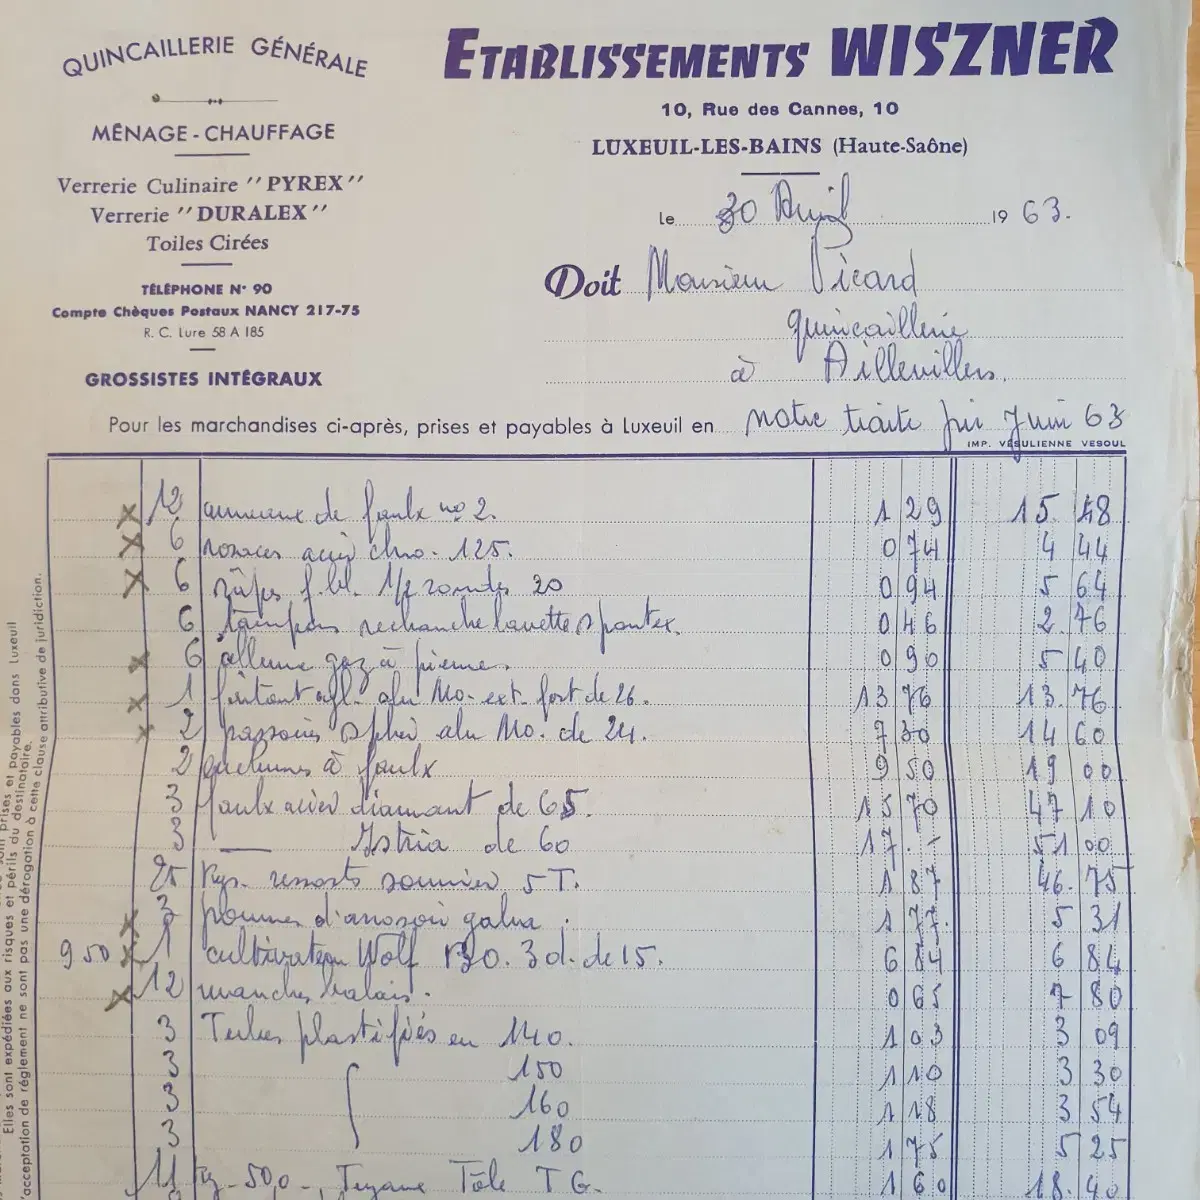 QUINCAILLERIE GÉNÉRALE
MÉNAGE - CHAUFFAGE
Verrerie Culinaire "PYREX"
Verrerie "DURALEX"
Toiles Cirées
TÉLÉPHONE N° 90
Compte Chèques Postaux NANCY 217-75
R. C. Lure 58 A 185
GROSSISTES INTÉGRAUX
ETABLISSEMENTS WISZNER
10, Rue des Cannes, 10
LUXEUIL-LES-BAINS (Haute-Saône)
le 30 Avril 1963.
Doit Monsieur Picard
quincaillerie
à Aillevillers.
Pour les marchandises ci-après, prises et payables à Luxeuil en notre traite fin Juin 63
IMP. VÉSULIENNE VESOUL
12 anneaux de faulx no 2. 1 29 15. 48
6 rosaces acier chro. 125. 0 74 4 44
6 râpes f. bl. 1/2 rondes 20 0 94 5 64
6 tampons rechange lavettes spontex. 0 46 2. 76
6 allume gaz à pierres. 0 90 5 40
1 alu Mo. ext. fort de 26. 13 76 13. 76
2 passoires sphér alu Mo. de 24. 7 30 14 60
2 enclumes à faulx 9 50 19 00
3 faulx acier diamant de 65. 15 70 47 10
3 — Istria de 60 17. - 51 00
25 Kgs. ressorts sommier 5 T. 1 87 46. 75
3 pommes d'arrosoir galva. 1 77. 5 31
9 50 1 cultivateur Wolf 3 d. de 15. 6 84 6 84
12 manches balais. 0 65 7 80
3 Tubes plastifiés en 140. 1 03 3 09
3 150 1 10 3 30
3 160 1 18 3 54
3 180 1 75 5 25
11 Kg 50,0, Tuyaux Tôle T G. 1 60 18. 40
prises et payables dans Luxeuil
Elles sont expédiées aux risques et périls du destinataire.
l'acceptation de réglement ne sont pas une dérogation à cette clause attributive de juridiction.